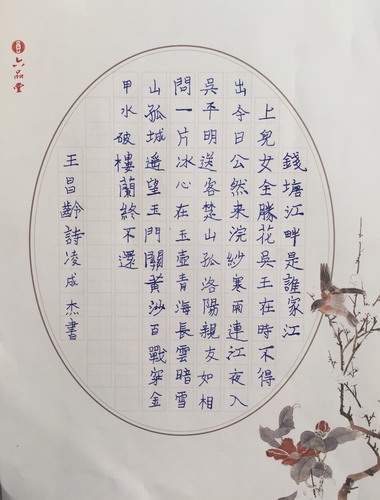 錢塘江畔是誰家江
上兒女全勝花吳王在時不得
出今日公然来浣紗寒雨連江夜入
吳平明送客楚山孤洛陽親友如相
問一片冰心在玉壺青海長雲暗雪
山孤城遥望玉門關黄沙百戰穿金
甲水破樓蘭終不還
王昌齡詩凌成杰書
六品堂